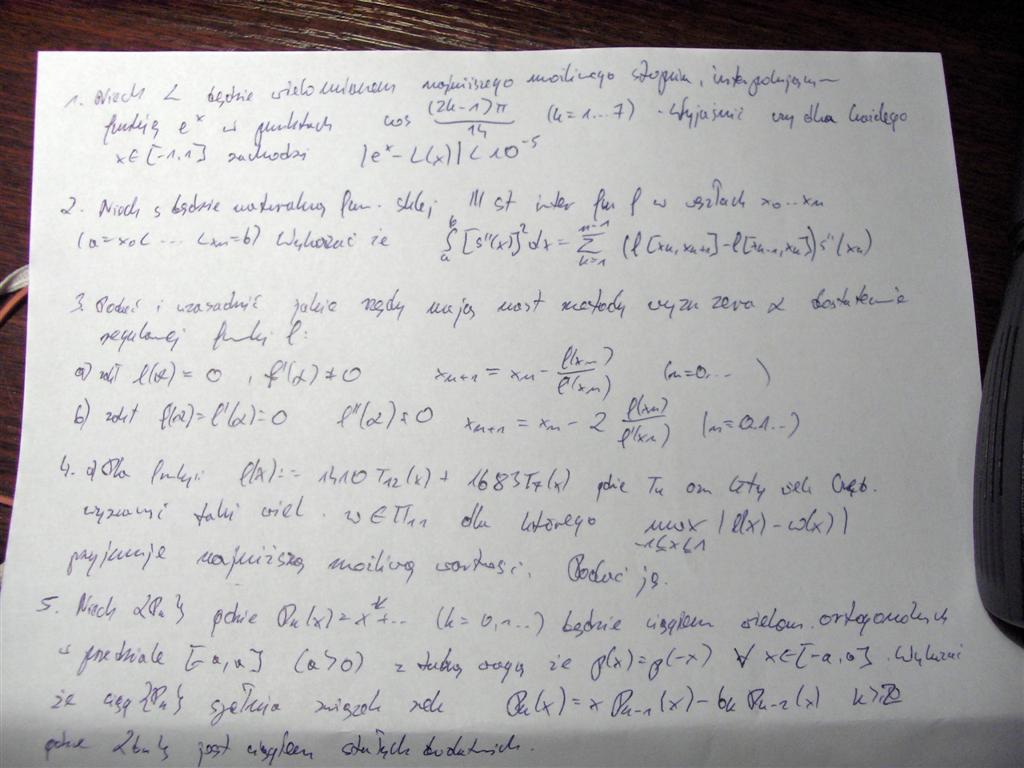 1. Niech L będzie wielomianem najniższego możliwego stopnia, interpolującym
funkcję e^x w punktach cos (2k-1)π/14 (k=1...7). Wyjaśnić czy dla każdego
x∈[-1,1] zachodzi |e^x - L(x)| < 10^-5
2. Niech s będzie naturalną fun. sklej III st inter fun f w węzłach x0...xn
(a=x0< ... <xn=b) Wykazać że ∫_a^b [s''(x)]^2 dx = Σ_{k=1}^{n-1} (f[xk,xk+1]-f[xk-1,xk])s''(xk)
3. Podać i uzasadnić jakie rzędy mają nast metody wyzn zera α dostatecznie
regularnej funkcji f:
a) zał f(α) = 0, f'(α) ≠ 0 xn+1 = xn - f(xn)/f'(xn) (n=0... )
b) zał f(α)=f'(α)=0 f''(α) ≠ 0 xn+1 = xn - 2 f(xn)/f'(xn) (n=0,1...)
4. Dla funkcji f(x):= 1410T12(x) + 1683T7(x) gdzie Tk ozn k-ty wiel Czeb.
wyznaczyć taki wiel. w∈Π11 dla którego max -1≤x≤1 |f(x)-w(x)|
przyjmuje najniższą możliwą wartość. Podać ją.
5. Niech {Pk} gdzie Pk(x)=x^k+... (k=0,1...) będzie ciągiem wielom. ortogonalnych
w przedziale [-a,a] (a>0) z taką wagą że p(x)=p(-x) ∀ x∈[-a,a]. Wykazać
że ciąg {Pk} spełnia związek rek Pk(x) = x Pk-1(x) - bk Pk-2(x) k≥2
gdzie {bk} jest ciągiem stałych dodatnich.